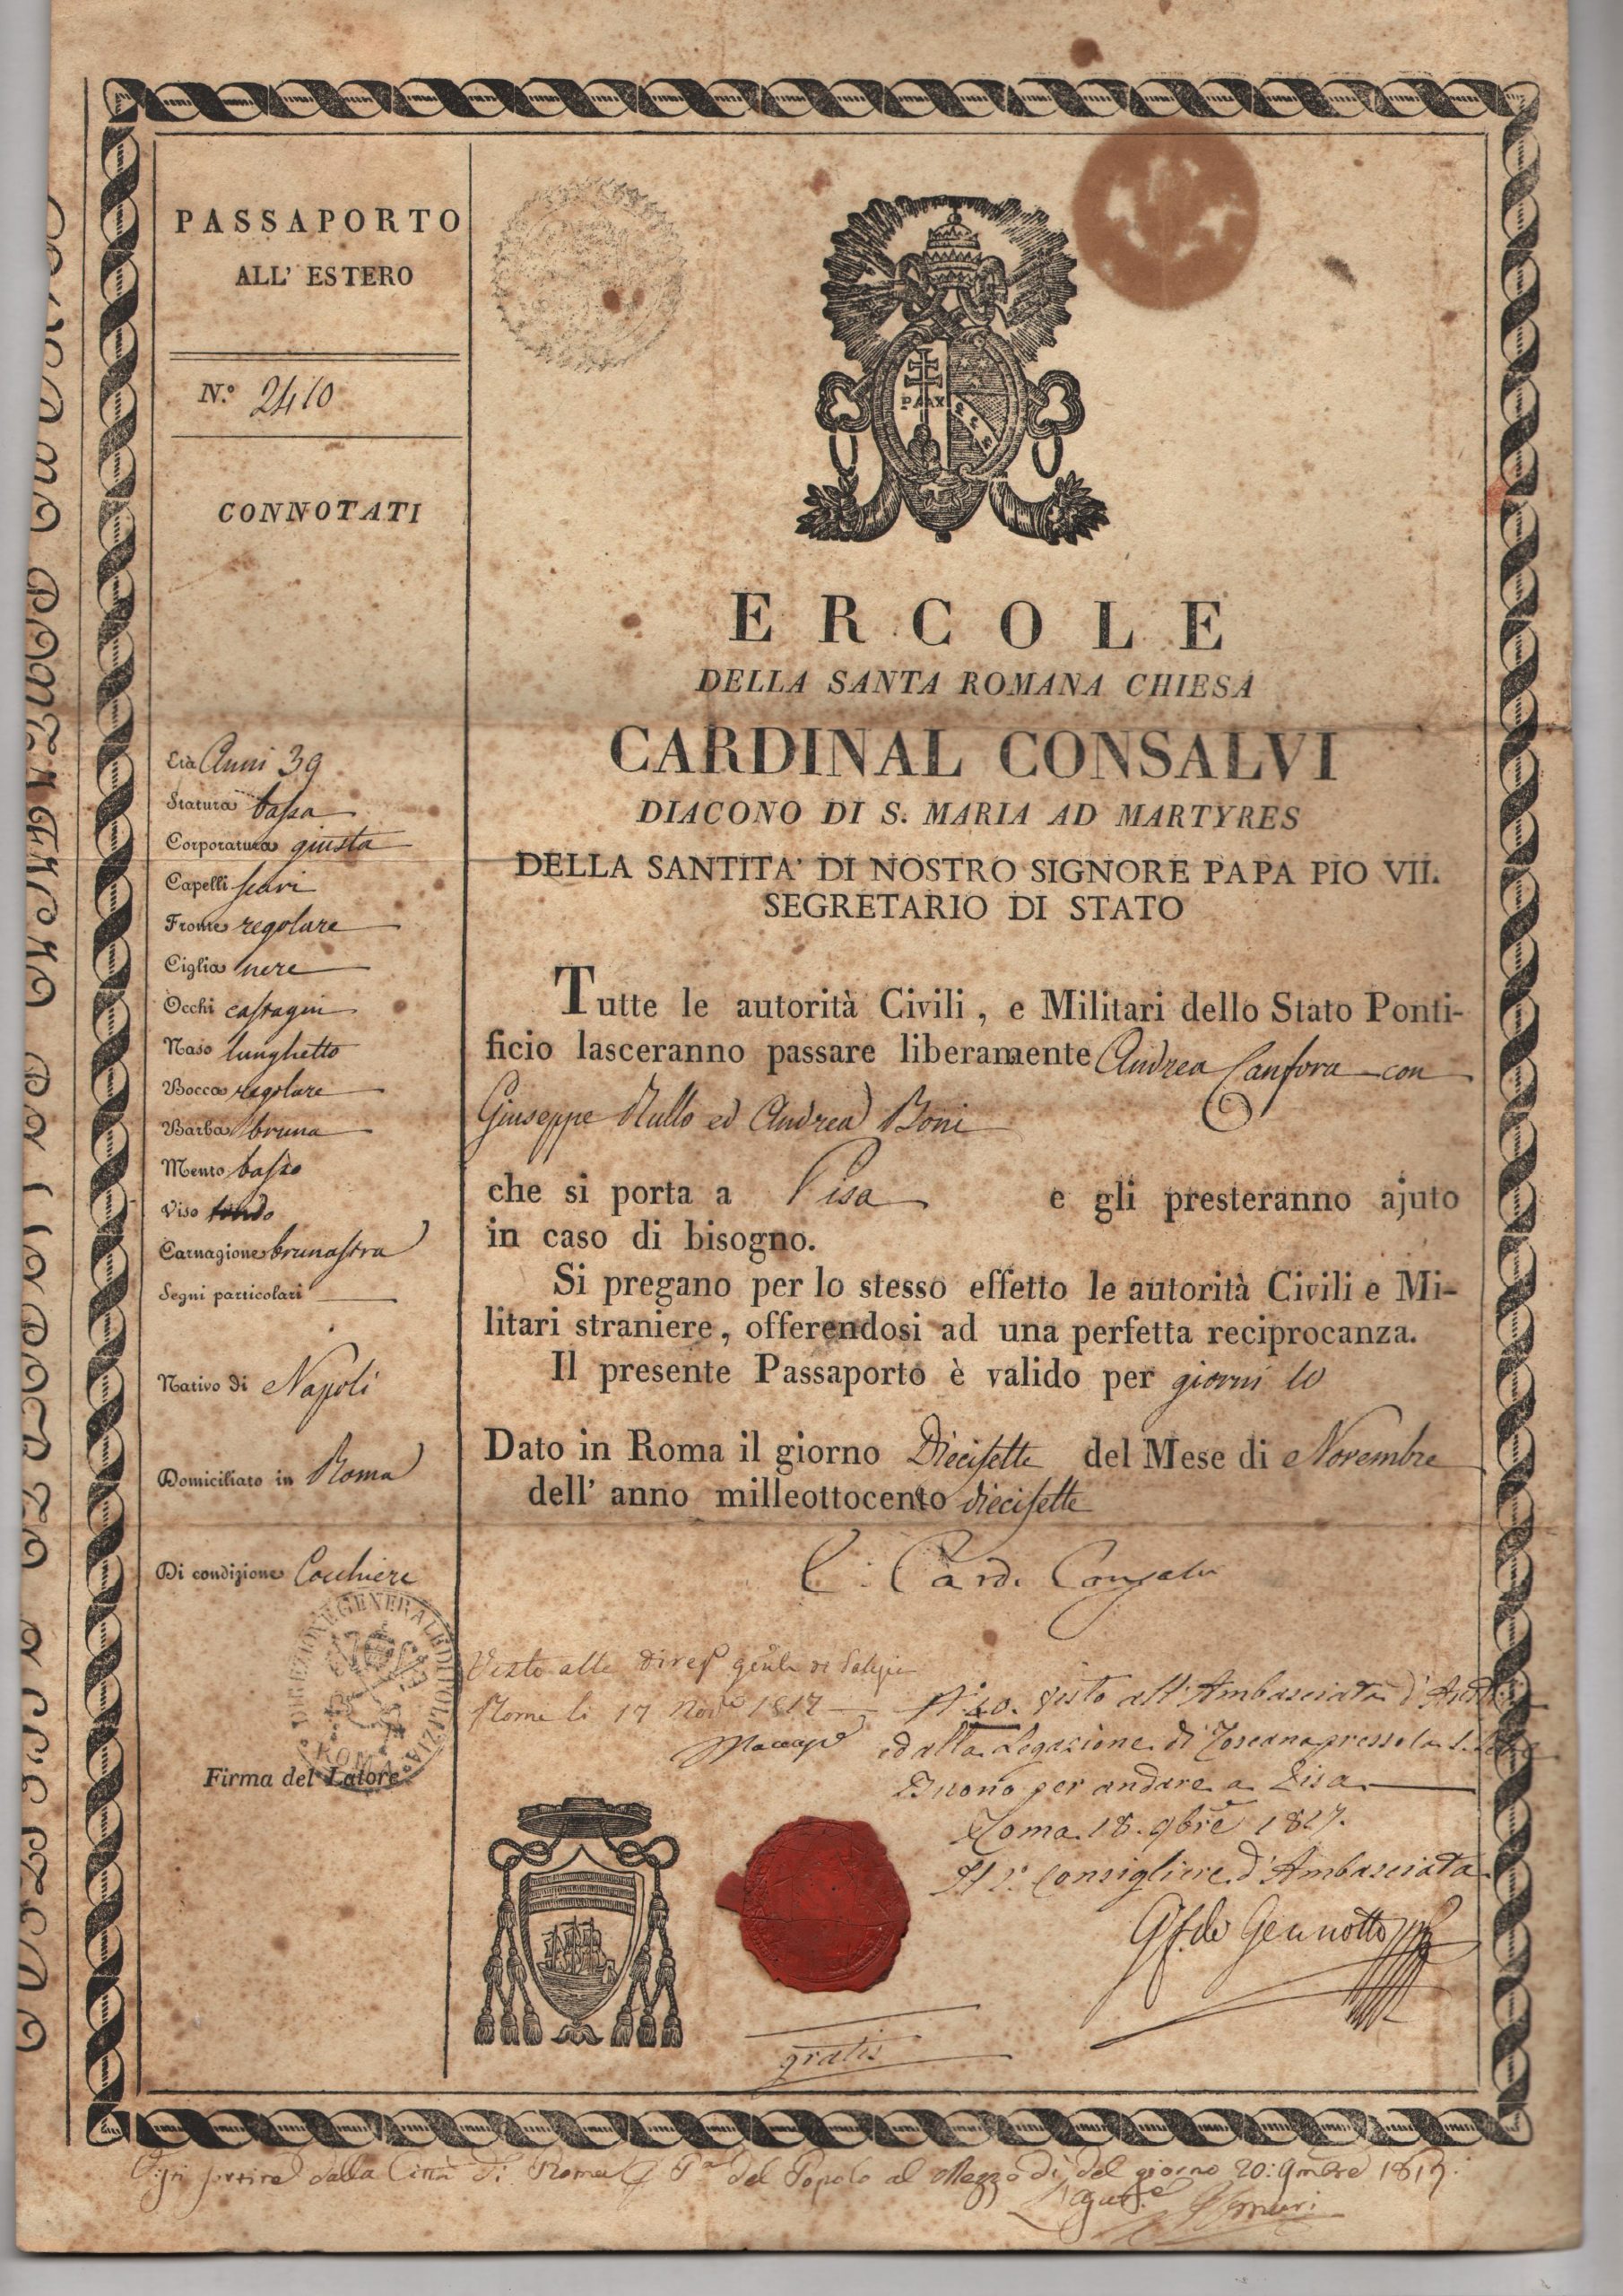 PASSAPORTO
ALL' ESTERO
N.º 2410
CONNOTATI
Età Anni 39
Statura bassa
Corporatura giusta
Capelli
Fronte regolare
Ciglia nere
Occhi castagni
Naso lunghetto
Bocca regolare
Barba bruna
Mento basso
Viso tondo
Carnagione brunastra
Segni particolari
Nativo di Napoli
Domiciliato in Roma
Di condizione Cocchiere
DIREZIONE GENERALE DI POLIZIA
ROMA
Firma del Latore
PAX
ERCOLE
DELLA SANTA ROMANA CHIESA
CARDINAL CONSALVI
DIACONO DI S. MARIA AD MARTYRES
DELLA SANTITA' DI NOSTRO SIGNORE PAPA PIO VII.
SEGRETARIO DI STATO
Tutte le autorità Civili, e Militari dello Stato Ponti-
ficio lasceranno passare liberamente Andrea Canfora con
Giuseppe Rullo ed Andrea Boni
che si porta a Pisa e gli presteranno ajuto
in caso di bisogno.
Si pregano per lo stesso effetto le autorità Civili e Mi-
litari straniere, offerendosi ad una perfetta reciprocanza.
Il presente Passaporto è valido per giorni 10
Dato in Roma il giorno Diecisette del Mese di Novembre
dell' anno milleottocento diecisette
E. Card. Consalvi
Visto alla Direz. genle di Polizia
Roma li 17 Nov. 1817
Visto all'Ambasciata d'
ed alla Legazione di Toscana presso la S.
Buono per andare a Pisa
Roma 18. 9bre 1817.
Consigliere d'Ambasciata
de Gennotte
gratis
sortire dalla Città di Roma Pa del Popolo al Mezzo dì del giorno 20: 9mbre 1817.